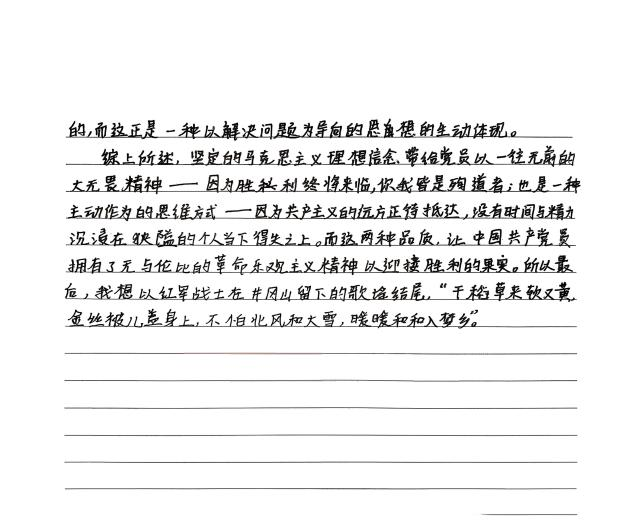 的,而这正是一种以解决问题为导向的思维的生动体现。
综上所述,坚定的马克思主义理想信念、带给党员以一往无前的
大无畏精神——因为胜利终将来临,你我皆是殉道者;也是一种
主动作为的思维方式——因为共产主义的远方正待抵达,没有时间与精力
沉浸在狭隘的个人当下得失之上。而这两种品质,让中国共产党员
拥有了无与伦比的革命乐观主义精神以迎接胜利的果实。所以最
后,我想以红军战士在井冈山留下的歌谣结尾,“干稻草来软又黄,
金丝被儿盖身上,不怕北风和大雪,暖暖和和入梦乡”。